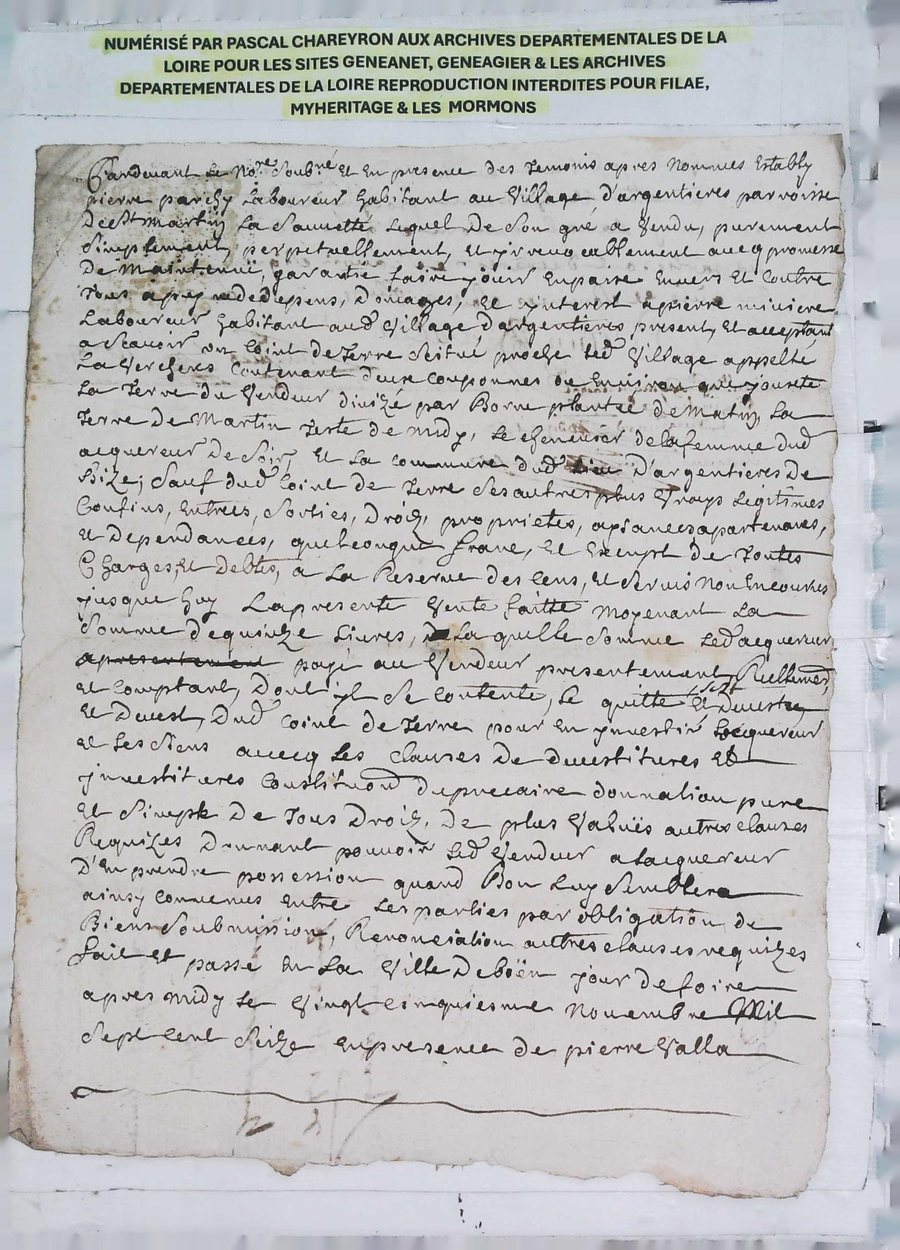 NUMÉRISÉ PAR PASCAL CHAREYRON AUX ARCHIVES DEPARTEMENTALES DE LA
LOIRE POUR LES SITES GENEANET, GENEAGIER & LES ARCHIVES
DEPARTEMENTALES DE LA LOIRE REPRODUCTION INTERDITES POUR FILAE,
MYHERITAGE & LES MORMONS
Pardevant Le No.re Soub.né Et En presence des Temoins apres Nommes Estably
pierre Laboureur habitant au Village d'argentieres parroisse
De st Martin La Sauvetté Lequel De Son gré a Vendu, purement
Simplement, perpetuellement, Et yrrevocablement avecq promesse
De Maintenir, garantie faire jouir Enpaise Envers Et Contre
Tous apeyne dedepens, domages, Et ynterest apierre
Laboureur habitant aud Village d'argentieres, present, Et acceptant
a Scavoir un Coint de Terre Scitué proche led Village appellé
La Verchere Contenant deux Couponnes ou Environ que jouxte
La Terre du Vendeur divizé par Borne plantée de Matin, La
Terre de Martin de Midy, Le chenevier delafemme dud
acquereur De Soir, Et La Commune dud Lieu D'argentieres De
Bize, Sauf dud Coint de Terre Ses autres plus Vrays Legitimes
Confins, Entrees, Sorties, Droiz, proprietes, apartenances,
Et Dependances, quelconque franc, Et Exempt de Toutes
Charges, Et Debtes, a La Reserve des Cens, Et Servis Non Encourus
jusque huy Lapresente Vente faitte Moyenant La
Somme dequinze Livres, Laquelle Somme Led acquereur
apresentement payé au Vendeur presentement Reellement,
Et Comptant, Dont yl Se Contente, Le quitte Et
Et Devest, Dud Coint de Terre pour En ynvestir Lacquereur
Et Les Siens avecq Les Clauses De devestitures Et
ynvestitures Constitution duprecaire donnation pure
Et Simple De Tous Droiz, De plus Valües autres clauses
Requizes Donnant pouvoir Led Vendeur a Lacquereur
D'En prendre possession quand Bon Luy Semblera
ainsy Convenus Entre Lesparties par obligation de
Biens Soubmission, Renonciation autres clauses requizes
fait Et passé En La Ville Deboën jour defoire
apres midy Le Vingt Cinquiesme Novembre Mil
Sept Cent Seize Enpresence de pierre Valla